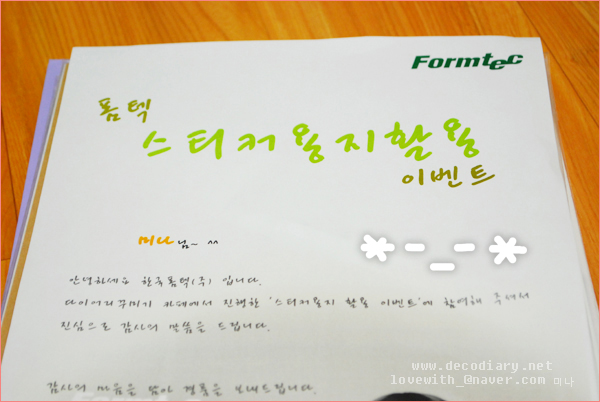 Formtec
폼텍
스티커용지활용
이벤트
미나님~ ^^
*-_-*
안녕하세요 한국폼텍(주) 입니다.
다이어리꾸미기 카페에서 진행한 '스티커용지 활용 이벤트'에 참여해 주셔서
진심으로 감사의 말씀을 드립니다.
감사의 마음을 담아 경품을 보내드립니다.
Formtec
www.decodiary.net
lovewith_@naver.com 미나